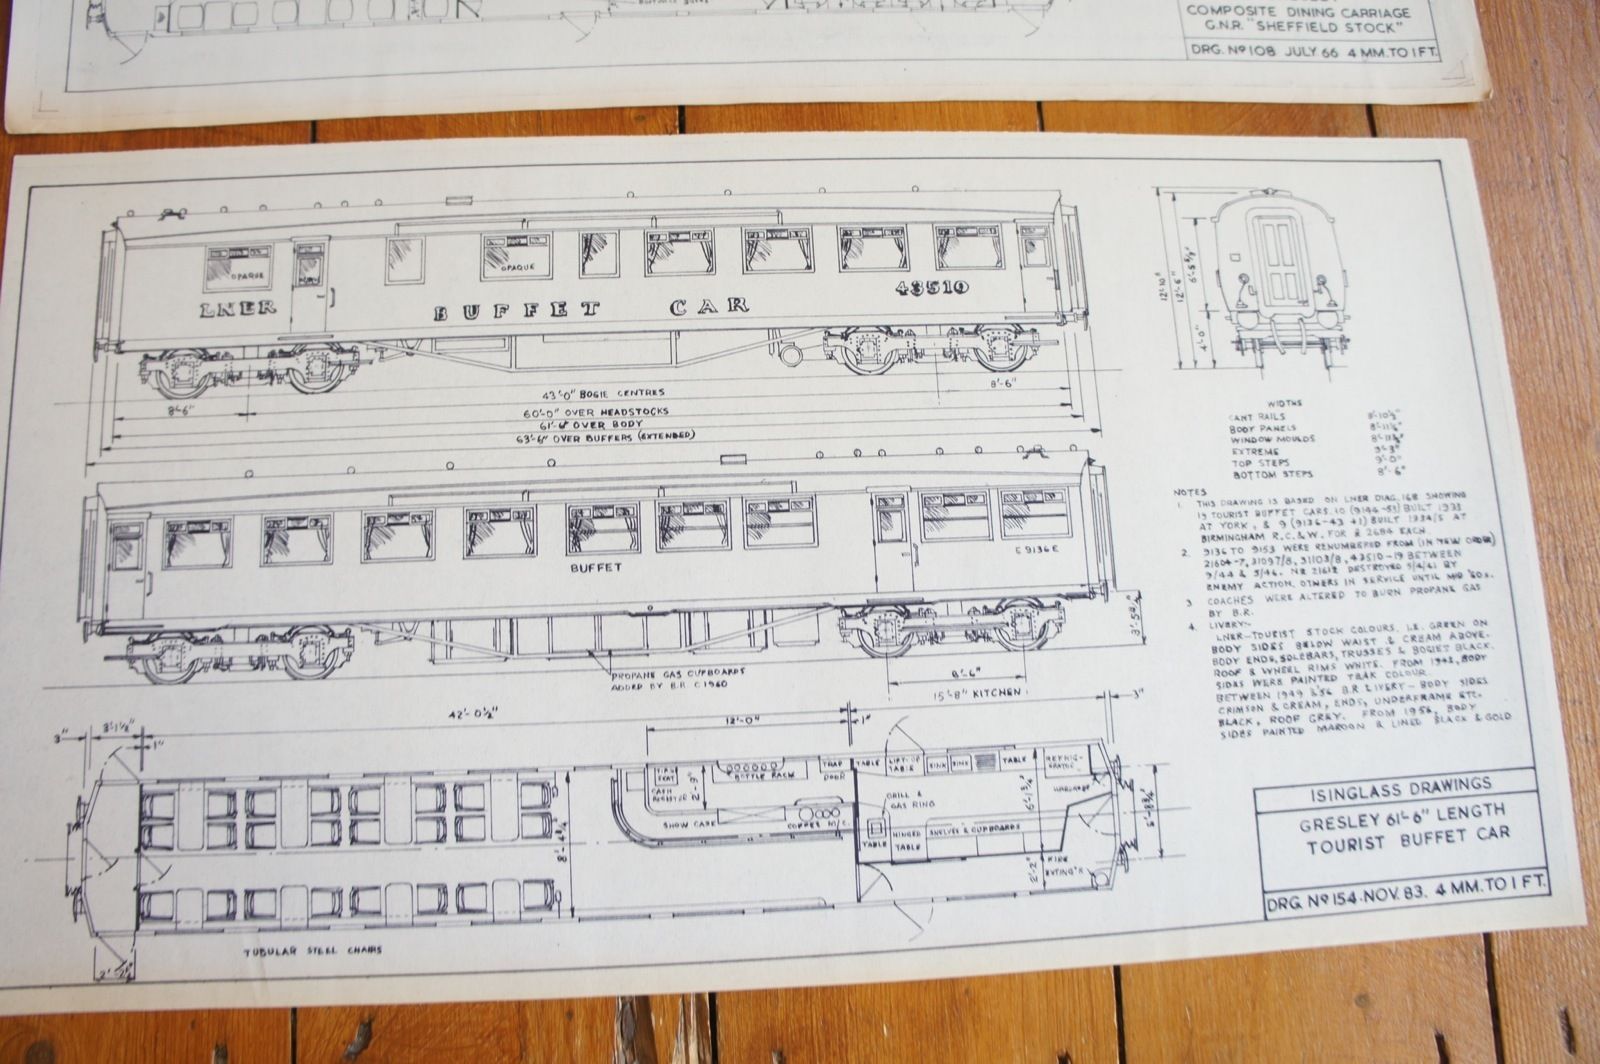 COMPOSITE DINING CARRIAGE
G.N.R. "SHEFFIELD STOCK"
DRG. Nº 108 JULY 66 4 MM. TO 1 FT.
OPAQUE
OPAQUE
LNER
BUFFET CAR
43510
8'-6"
43'-0" BOGIE CENTRES
8'-6"
60'-0" OVER HEADSTOCKS
61'-6" OVER BODY
63'-6" OVER BUFFERS (EXTENDED)
12'-10"
12'-6"
4'-0"
WIDTHS
CANT RAILS 8'-10½"
BODY PANELS
WINDOW MOULDS
EXTREME 9'-3"
TOP STEPS 9'-0"
BOTTOM STEPS 8'-6"
BUFFET
E 9136 E
PROPANE GAS CUPBOARDS
ADDED BY B.R. C 1960
8'-6"
15'-8" KITCHEN
3"
42'-0½"
12'-0"
1"
3"
3'-1½"
1"
NOTES
1. THIS DRAWING IS BASED ON LNER DIAG. 168 SHOWING
19 TOURIST BUFFET CARS. 10 (9144-53) BUILT 1933
AT YORK, & 9 (9136-43 +1) BUILT 1934/5 AT
BIRMINGHAM R.C.&W. FOR £ 2684 EACH.
2. 9136 TO 9153 WERE RENUMBERED FROM (IN NEW ORDER)
21604-7, 31097/8, 31103/8, 43510-19 BETWEEN
9/44 & 5/46. Nº 21612 DESTROYED 5/4/41 BY
ENEMY ACTION, OTHERS IN SERVICE UNTIL MID '60s.
3 COACHES WERE ALTERED TO BURN PROPANE GAS
BY B.R.
4. LIVERY:-
LNER-TOURIST STOCK COLOURS, I.E. GREEN ON
BODY SIDES BELOW WAIST & CREAM ABOVE.
BODY ENDS, SOLEBARS, TRUSSES & BOGIES BLACK.
ROOF & WHEEL RIMS WHITE. FROM 1942, BODY
SIDES WERE PAINTED TEAK COLOUR.
BETWEEN 1949 & '56 B.R LIVERY - BODY SIDES
CRIMSON & CREAM, ENDS, UNDERFRAME ETC.
BLACK, ROOF GREY. FROM 1956, BODY
SIDES PAINTED MAROON & LINED BLACK & GOLD
SEAT
CASH
REGISTER
2'-9"
BOTTLE RACK
TRAP
DOOR
TABLE
LIFT-UP
TABLE
SINK
SINK
TABLE
REFRIG-
ERATOR
SHOW CASE
GRILL &
GAS RING
HINGED
TABLE
TABLE
SHELVES & CUPBOARDS
2'-2"
FIRE
EXTING'R
TUBULAR STEEL CHAIRS
ISINGLASS DRAWINGS
GRESLEY 61'-6" LENGTH
TOURIST BUFFET CAR
DRG. Nº 154. NOV. 83. 4 MM. TO 1 FT.